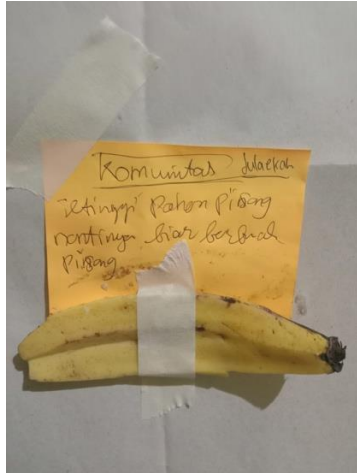 Komunitas Julaekah
Setinggi Pohon Pisang
nantinya biar berbuah
Pisang